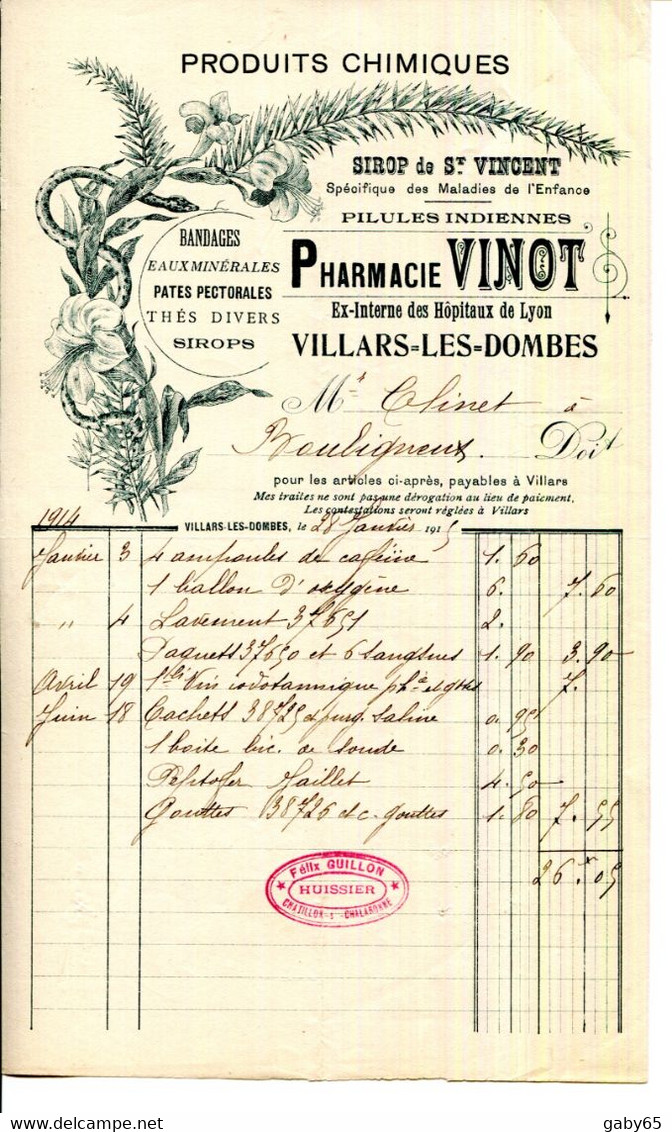 PRODUITS CHIMIQUES
SIROP de ST VINCENT
Spécifique des Maladies de l'Enfance
PILULES INDIENNES
BANDAGES
EAUX MINÉRALES
PATES PECTORALES
THÉS DIVERS
SIROPS
PHARMACIE VINOT
Ex-Interne des Hôpitaux de Lyon
VILLARS=LES=DOMBES
Mr Clinet à
Bouligneux. Doit
pour les articles ci-après, payables à Villars
Mes traites ne sont pas une dérogation au lieu de paiement.
Les contestations seront réglées à Villars
1914
VILLARS-LES-DOMBES, le 28 Janvier 1915
Janvier 3 4 ampoules de caféine 1. 60
1 ballon d'oxygène 6. 7. 60
" 4 Lavement 37651 2.
Paquets 37650 et 6 sangsues 1. 90 3. 90
Avril 19 Vin iodotannique 7.
Juin 18 Cachets 38725 et purg. saline 0. 95
1 boite bic. de soude 0. 30
Peptofer Jaillet 4. 50
Gouttes 38726 et c. gouttes 1. 80 7. 55
26. 05
Félix GUILLON
HUISSIER
CHATILLON-S-CHALARONNE
delcampe.net
gaby65